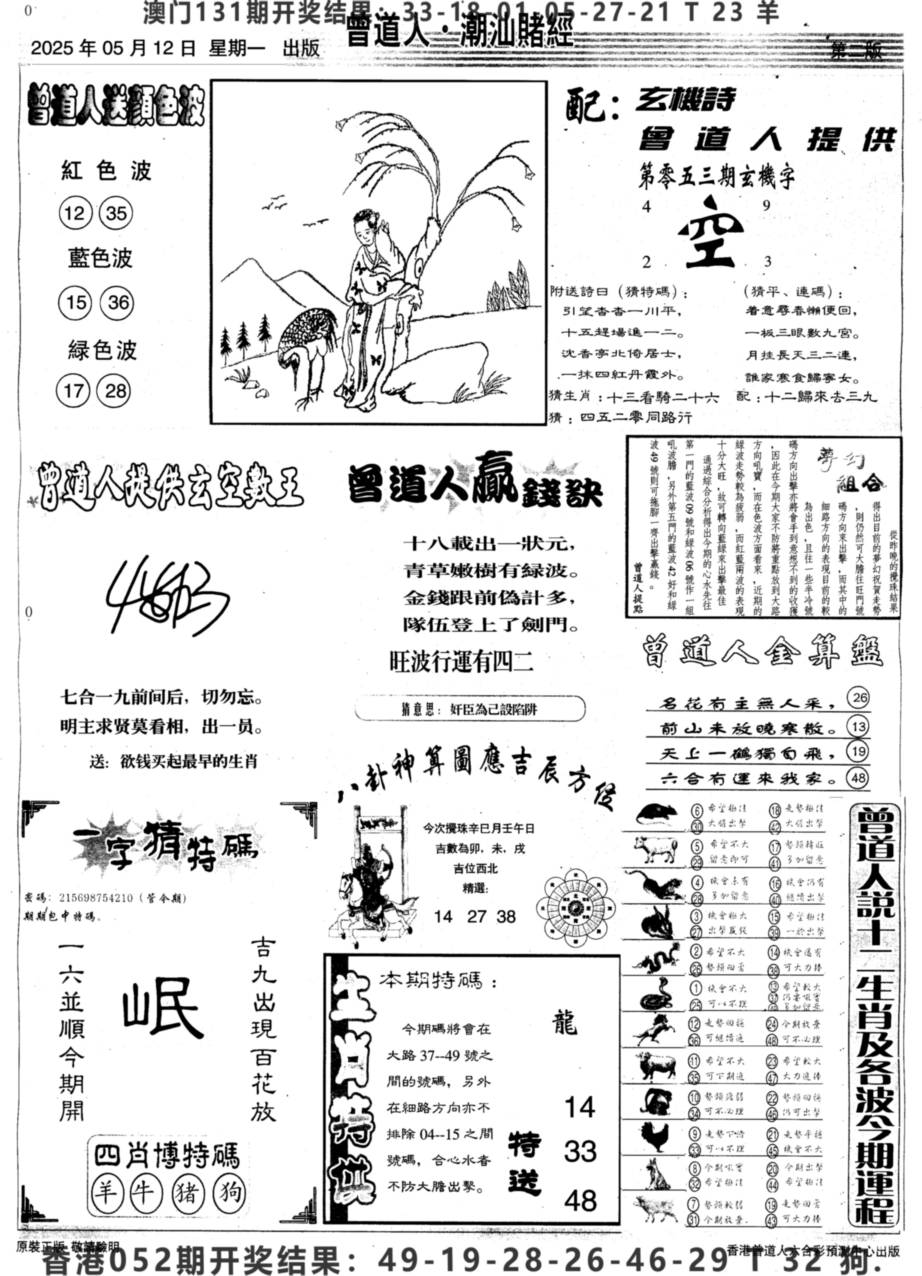 澳门131期开奖结果：33-18-01-05-27-21 T 23 羊
2025年05月12日 星期一 出版
曾道人·潮汕賭經
第二版
曾道人送顏色波
紅色波
12 35
藍色波
15 36
緑色波
17 28
配：玄機詩
曾道人提供
第零五三期玄機字
4 9
空
2 3
附送詩曰（猜特碼）：
引望杳杳一川平，
十五趕場進一二。
沈香亭北倚居士，
一抹四紅丹霞外。
猜生肖：十三看騎二十六
猜：四五二零同路行
（猜平、連碼）：
着意尋春懶便回，
一板三眼數九宮。
月挂長天三二連，
誰家寒食歸寧女。
配：十二歸來去三九
曾道人提供玄空數王
七合一九前间后，切勿忘。
明主求贤莫看相，出一员。
送：欲钱买起最早的生肖
曾道人贏錢訣
十八載出一狀元，
青草嫩樹有綠波。
金錢跟前偽計多，
隊伍登上了劍門。
旺波行運有四二
猜意思：奸臣為己設陷阱
夢幻
組合
從昨晚的攪珠結果
得出目前的夢幻祝賀走勢
，則仍然可大膽往旺門號
碼方向來出擊，而其中的
細路方向的表現目前的較
為出色，且住一些半冷號
碼方向出擊亦將會手到意想不到的收獲
，因此在今期大家不防將重點放到大路
方向吼寶，而在色波方面看來，近期的
綠波走勢較為疲弱，而紅藍兩波的表現
十分大旺，故可轉向藍綠來出擊最佳
通過綜合分析得出今期的心水先往
第一門的藍波09號和綠波06號作一組
吼波膽，另外第五門的藍波42好和綠
波49號則可施腳一齊出擊贏錢。
曾道人提點
曾道人金算盤
名花有主無人采，26
前山未放曉寒散。13
天上一鶴獨自飛，19
六合有運來我家。48
八卦神算圖應吉辰方位
今次攪珠辛巳月壬午日
吉數為卯、未、戌
吉位西北
精選：
14 27 38
一字猜特碼
密碼：215698754210（管今期）
期期包中特碼。
吉九出現百花放
岷
一六並順今期開
四肖博特碼
羊 牛 豬 狗
生肖特供
本期特碼：
龍
今期碼將會在
大路37--49號之
間的號碼，另外
在細路方向亦不
排除04--15之間
號碼，合心水者
不防大膽出擊。
特送
14
33
48
曾道人説十二生肖及各波今期運程
6 希望極佳 18 走勢極佳
30 大綫出擊 42 大綫出擊
5 希望不大 17
29 留意即可 41 多加留意
4 機會未有 16 機會仍有
28 多加留意 40 繼續出擊
3 機會極大 15 希望極佳
27 39 一於出擊
2 希望不大 14 機會還有
26 38 可大力捧
1 機會不大 13 希望較大
25 可以不理 37
12 24 今期放棄
36 48 可不必理
11 希望不大 23 希望較大
35 47 大力追捧
10 22
34 可不必理 46 仍可出擊
9 21 走勢平穩
33 可以不理 45 機會不大
8 今期吼實 20 今期出擊
32 希望極佳 44 希望極佳
7 19
31 今期放棄 43 可大力捧
原裝正版 敬請驗明
香港曾道人六合彩預測中心出版
香港052期开奖结果：49-19-28-26-46-29 T 32 狗.